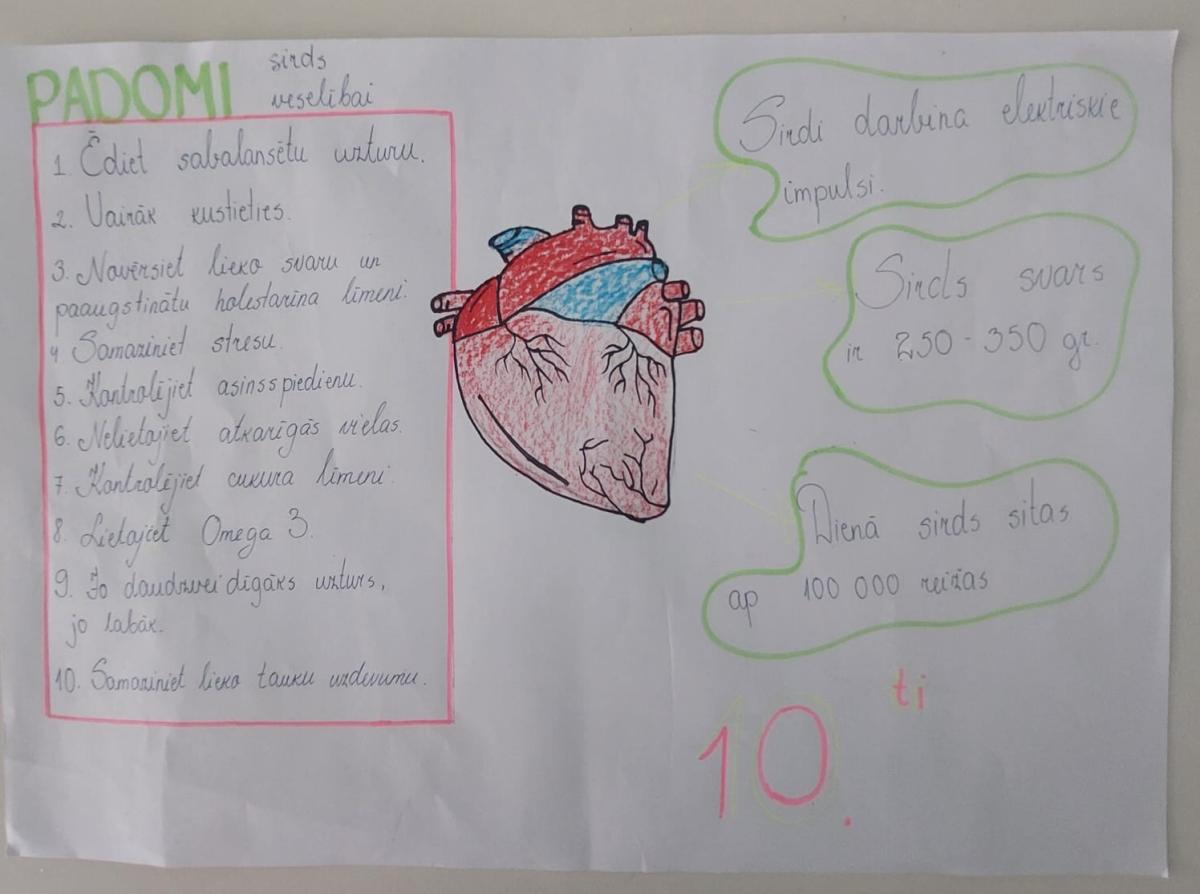 PADOMI sirds
veselībai
1. Ēdiet sabalansētu uzturu.
2. Vairāk kustieties.
3. Novērsiet lieko svaru un
paaugstinātu holestarīna līmeni.
4 Samaziniet stresu.
5. Kontrolējiet asinsspiedienu.
6. Nelietajiet atkarīgās vielas.
7. Kontrolējiet cukura līmeni.
8. Lietajiet Omega 3.
9. Jo daudzveidīgāks uzturs,
jo labāk.
10. Samaziniet lieko tauku uzdevumu.
Sirdi darbina elektriskie
impulsi.
Sirds svars
ir 250-350 gr.
Dienā sirds sitas
ap 100 000 reižas
10. ti